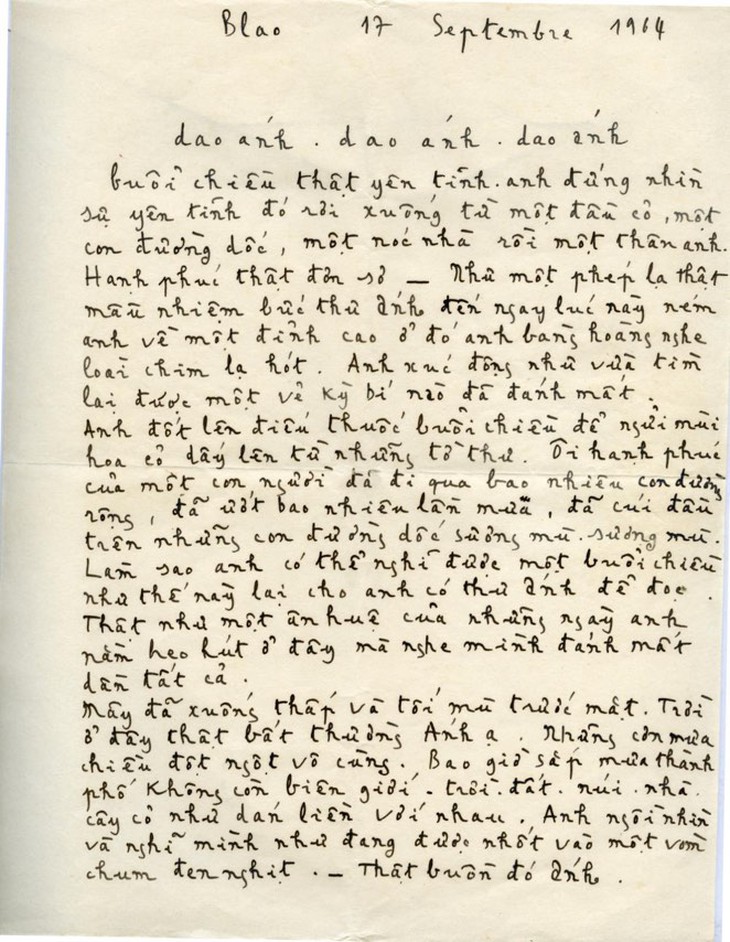 Blao 17 Septembre 1964
dao ánh . dao ánh . dao ánh
buổi chiều thật yên tĩnh. anh đứng nhìn
sự yên tĩnh đó rơi xuống từ một đầu cỏ, một
con đường dốc, một nóc nhà rồi một thân anh.
Hạnh phúc thật đơn sơ — Như một phép lạ thật
mầu nhiệm bức thư ánh đến ngay lúc này ném
anh về một đỉnh cao ở đó anh bàng hoàng nghe
loài chim lạ hót. Anh xúc động như vừa tìm
lại được một vẻ kỳ bí nào đã đánh mất.
Anh đốt lên điếu thuốc buổi chiều để ngửi mùi
hoa cỏ dấy lên từ những tờ thư. Ôi hạnh phúc
của một con người đã đi qua bao nhiêu con đường
rộng, đã ướt bao nhiêu lần mưa, đã cúi đầu
trên những con đường dốc sương mù. sương mù.
Làm sao anh có thể nghĩ được một buổi chiều
như thế này lại cho anh có thư ánh để đọc.
Thật như một ân huệ của những ngày anh
nằm heo hút ở đây mà nghe mình đánh mất
dần tất cả.
Mây đã xuống thấp và tối mù trước mặt. Trời
ở đây thật bất thường Ánh ạ. Những cơn mưa
chiều đột ngột vô cùng. Bao giờ sắp mưa thành
phố không còn biên giới. trời. đất. núi. nhà.
cây cỏ như dán liền với nhau. Anh ngồi nhìn
và nghĩ mình như đang được nhốt vào một vòm
chum đen nghịt. — Thật buồn đó ánh.